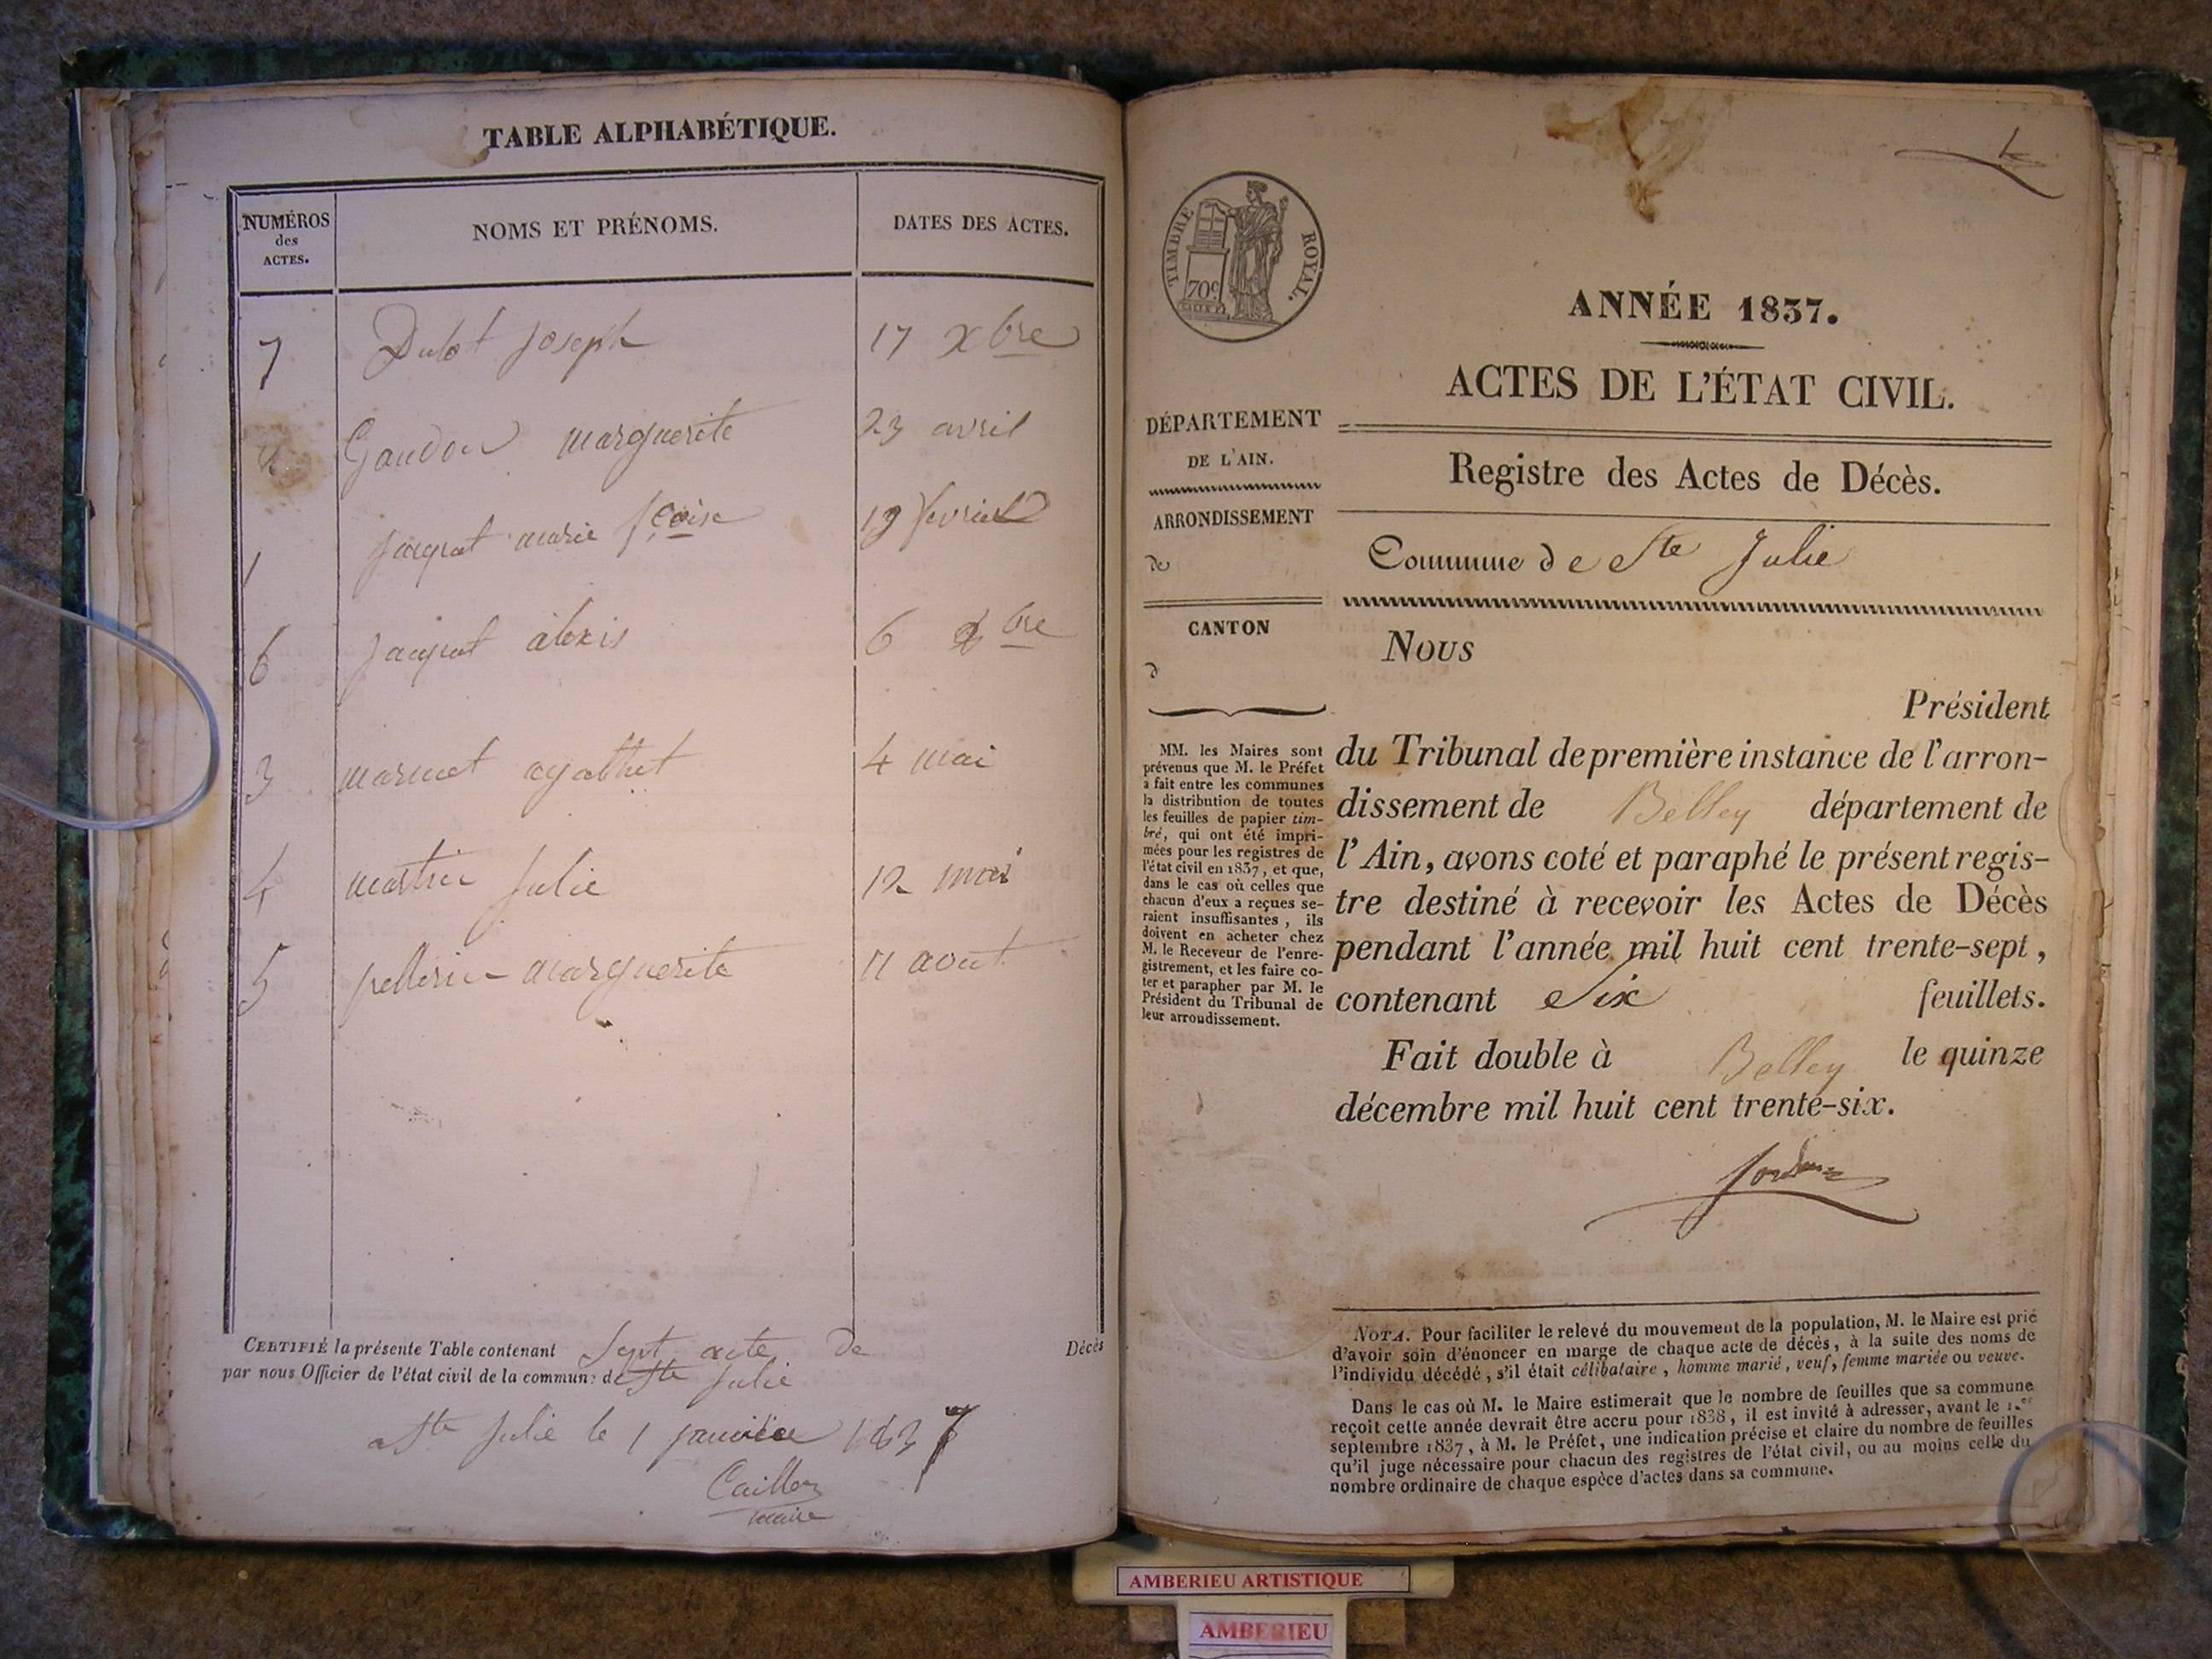 TABLE ALPHABÉTIQUE.
NUMÉROS des ACTES.
NOMS ET PRÉNOMS.
DATES DES ACTES.
7 Dubot joseph 17 xbre
2 Gaudon marguerite 23 avril
1 jacquet marie fcoise 19 fevrier
6 jacquet alexis 6 xbre
3 marmet agathet 4 mai
4 martin julie 12 mai
5 pellerin marguerite 11 août
CERTIFIÉ la présente Table contenant Sept acte de Décès
par nous Officier de l'état civil de la commune de Ste Julie
a Ste Julie le 1 janvier 1837
maire
TIMBRE ROYAL.
70c
ANNÉE 1837.
ACTES DE L'ÉTAT CIVIL.
DÉPARTEMENT
DE L'AIN.
ARRONDISSEMENT
de
CANTON
d
MM. les Maires sont
prévenus que M. le Préfet
a fait entre les communes
la distribution de toutes
les feuilles de papier tim-
bré, qui ont été impri-
mées pour les registres de
l'état civil en 1837, et que,
dans le cas où celles que
chacun d'eux a reçues se-
raient insuffisantes, ils
doivent en acheter chez
M. le Receveur de l'enre-
gistrement, et les faire co-
ter et parapher par M. le
Président du Tribunal de
leur arrondissement.
Registre des Actes de Décès.
Commune de Ste Julie
Nous
Président
du Tribunal de première instance de l'arron-
dissement de Belley département de
l'Ain, avons coté et paraphé le présent regis-
tre destiné à recevoir les Actes de Décès
pendant l'année mil huit cent trente-sept,
contenant Six feuillets.
Fait double à Belley le quinze
décembre mil huit cent trente-six.
NOTA. Pour faciliter le relevé du mouvement de la population, M. le Maire est prié
d'avoir soin d'énoncer en marge de chaque acte de décès, à la suite des noms de
l'individu décédé, s'il était célibataire, homme marié, veuf, femme mariée ou veuve.
Dans le cas où M. le Maire estimerait que le nombre de feuilles que sa commune
reçoit cette année devrait être accru pour 1838, il est invité à adresser, avant le 1.er
septembre 1837, à M. le Préfet, une indication précise et claire du nombre de feuilles
qu'il juge nécessaire pour chacun des registres de l'état civil, ou au moins celle du
nombre ordinaire de chaque espèce d'actes dans sa commune.
AMBERIEU ARTISTIQUE
AMBERIEU